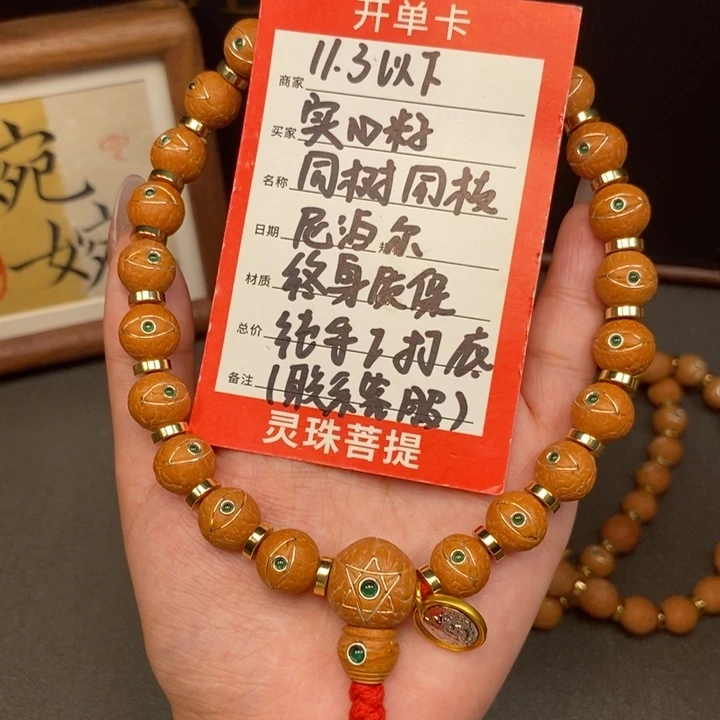 开单卡
商家 11.3以下
买家 实心籽
名称 同树同核
日期 尼泊尔
材质 终身质保
总价 纯手工打底
备注 (联系客服)
灵珠菩提
宛
女